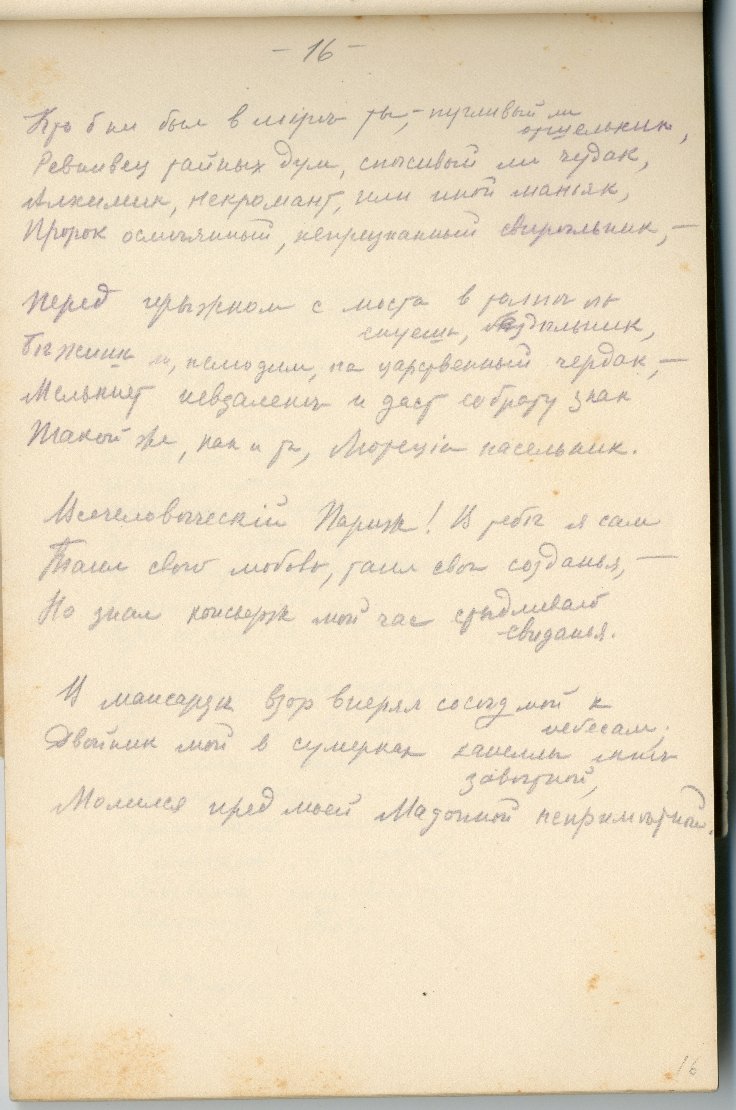 — 16 —
Кто б ни был в мiрѣ ты, — пугливый ли
отшельник,
Ревнивец тайных дум, спесивый ли чудак,
Алхимик, некромант, или иной манiяк,
Пророк осмѣянный, непризнанный свирѣльник, —
Перед прыжком с моста в толпѣ ль
снуешь, бездѣльник,
Бѣжишь ль, нелюдим, на царственный чердак, —
Мелькнет невдалекѣ и даст собрату знак
Такой же, как и ты, Лютецiи насельник.
Всечеловѣческiй Париж! В тебѣ я сам
Таил свою любовь, таил свои созданья, —
Но знал консьерж мой час стыдливаго
свиданья.
В мансардѣ взор вперял сосѣд мой к
небесам;
Двойник мой в сумерках капеллы мнѣ
завѣтной,
Молился пред моей Мадонной непримѣтной.
16